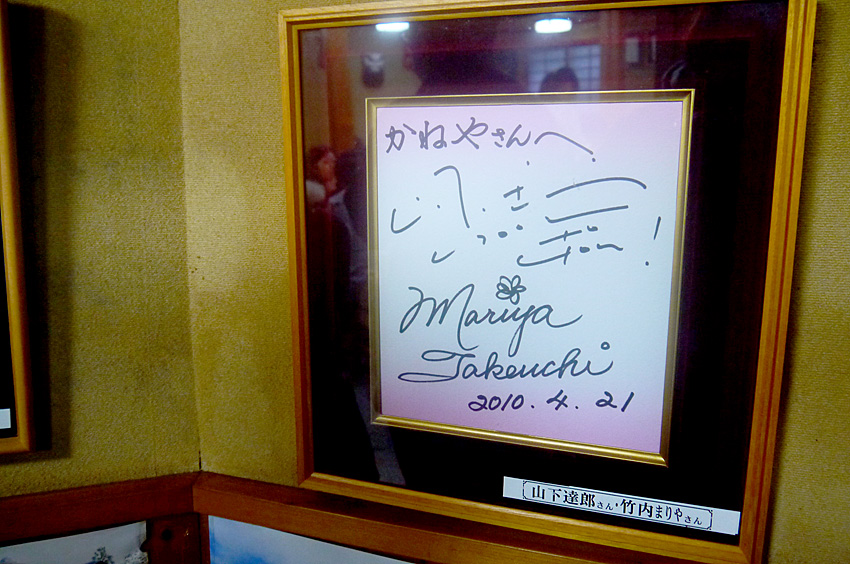 かねやさんへ
Mariya
Takeuchi
2010.4.21
山下達郎さん・竹内まりやさん